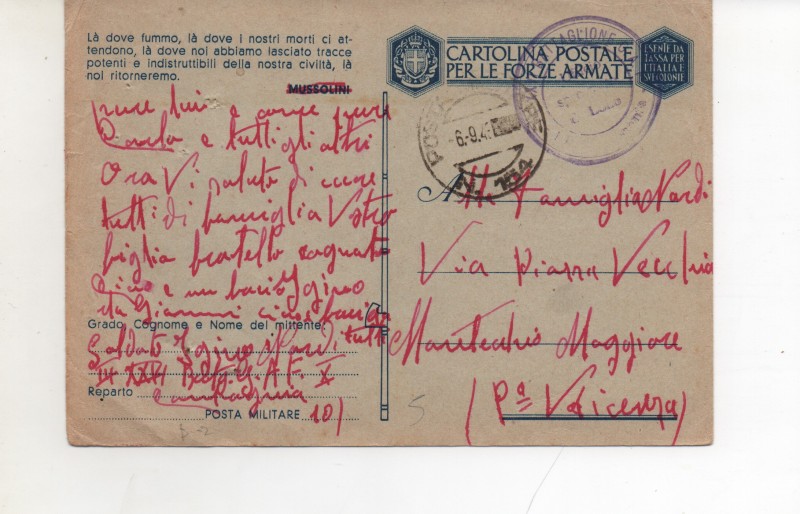 Là dove fummo, là dove i nostri morti ci at-
tendono, là dove noi abbiamo lasciato tracce
potenti e indistruttibili della nostra civiltà, là
noi ritorneremo.
MUSSOLINI
pure lui e come pure
e tutti gli altri
Ora Vi saluto di cuore
tutti di famiglia Vostro
figlio fratello cognato
Gino e un bacio
da Gianni ciao
tutti
Grado, Cognome e Nome del mittente:
Soldato Nardi
XXVI G.A.F. X
Reparto
POSTA MILITARE 101
CARTOLINA POSTALE
PER LE FORZE ARMATE
ESENTE DA
TASSA PER
L'ITALIA E
SUE COLONIE
POSTA
6.9.4
N. 154
Alla Famiglia Nardi
Via Piazza Vecchia
Montecchio Maggiore
(Pa Vicenza)
5